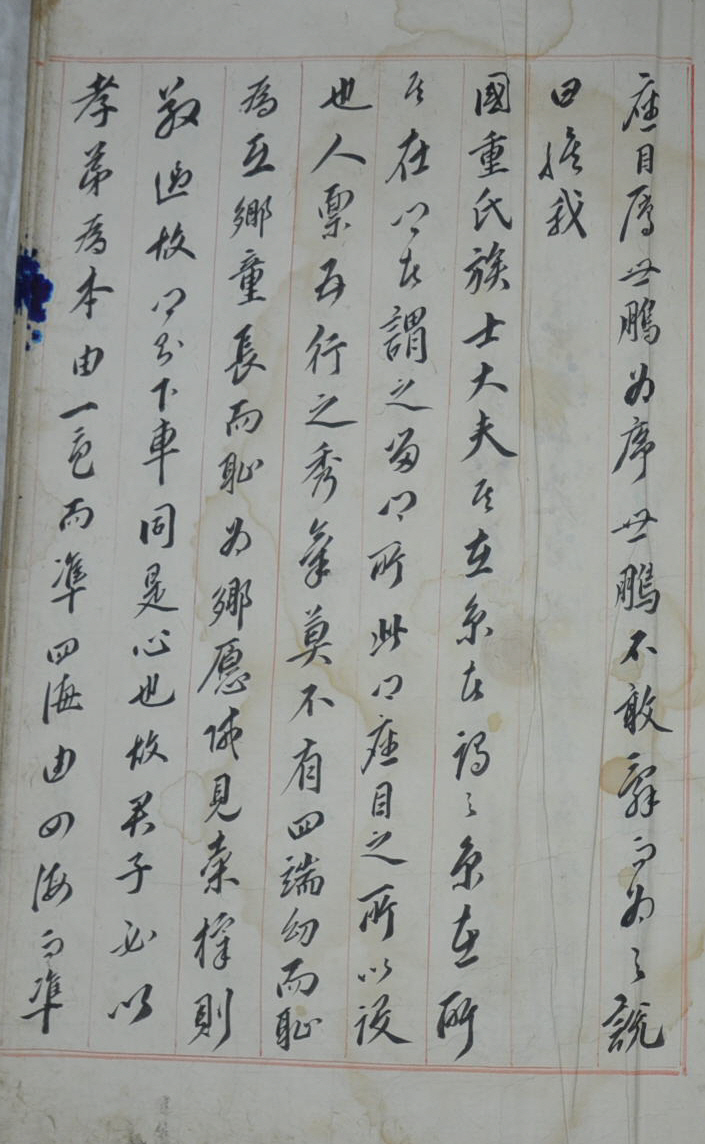 座目屬世鵬為序世鵬不敢辭而為之說
曰我
國重氏族士大夫其在京者謂之京在所
其在鄉者謂之留鄉所此鄉座目之所以設
也人稟五行之秀氣莫不有四端幼而恥
為互鄉童長而恥為鄉愿見則
敬過故鄉則下車同是心也故君子必以
孝弟為本由一邑而準四海由四海而準